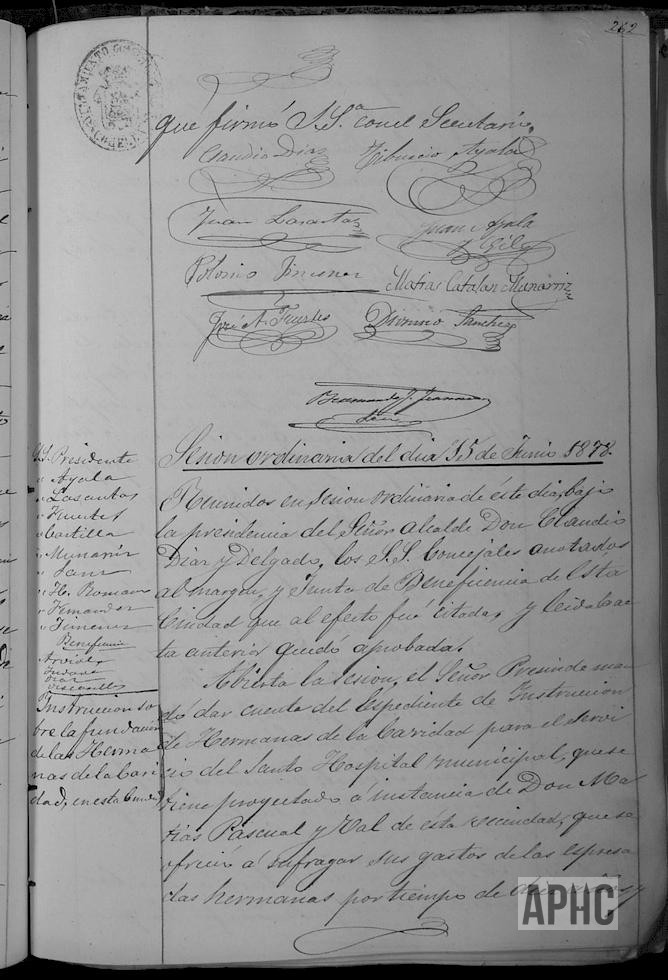 262
AYUNTAMIENTO
que firmó S.S.ª con el Secretario.
Claudio Diaz Tiburcio Ayala
Juan Lasantas Juan Ayala
y Gil
Polonio Jimenez Matias Catalan Munarriz
José A. Fuertes Dionisio Sanchez
Sesion ordinaria del dia 15 de Junio 1878.
S.S. Presidente
" Ayala
" Lasantas
" Fuertes
" Castilla
" Munarriz
" Sanz
" H. Romano
" Fernandez
" Jimenez
Beneficencia
Reunidos en sesion ordinaria de éste dia, bajo
la presidencia del Señor Alcalde Don Claudio
Diaz y Delgado, los S.S. Concejales anotados
al margen, y Junta de Beneficencia de Esta
Ciudad que al efecto fué citada, y leida la ac
ta anterior quedó aprobada.
Instruccion so
bre la fundacion
de las Herma
nas de la Cari
dad, en esta Ciudad
Abierta la sesion, el Señor Presinde man
dó dar cuenta del Espediente de Instruccion
de Hermanas de la Caridad para el servi
cio del Santo Hospital municipal, que se
tiene proyectado á instancia de Don Ma
tias Pascual y Val de esta vecindad, que se
ofreció á sufragar sus gastos de las espresa
das hermanas por tiempo de años y
APHC